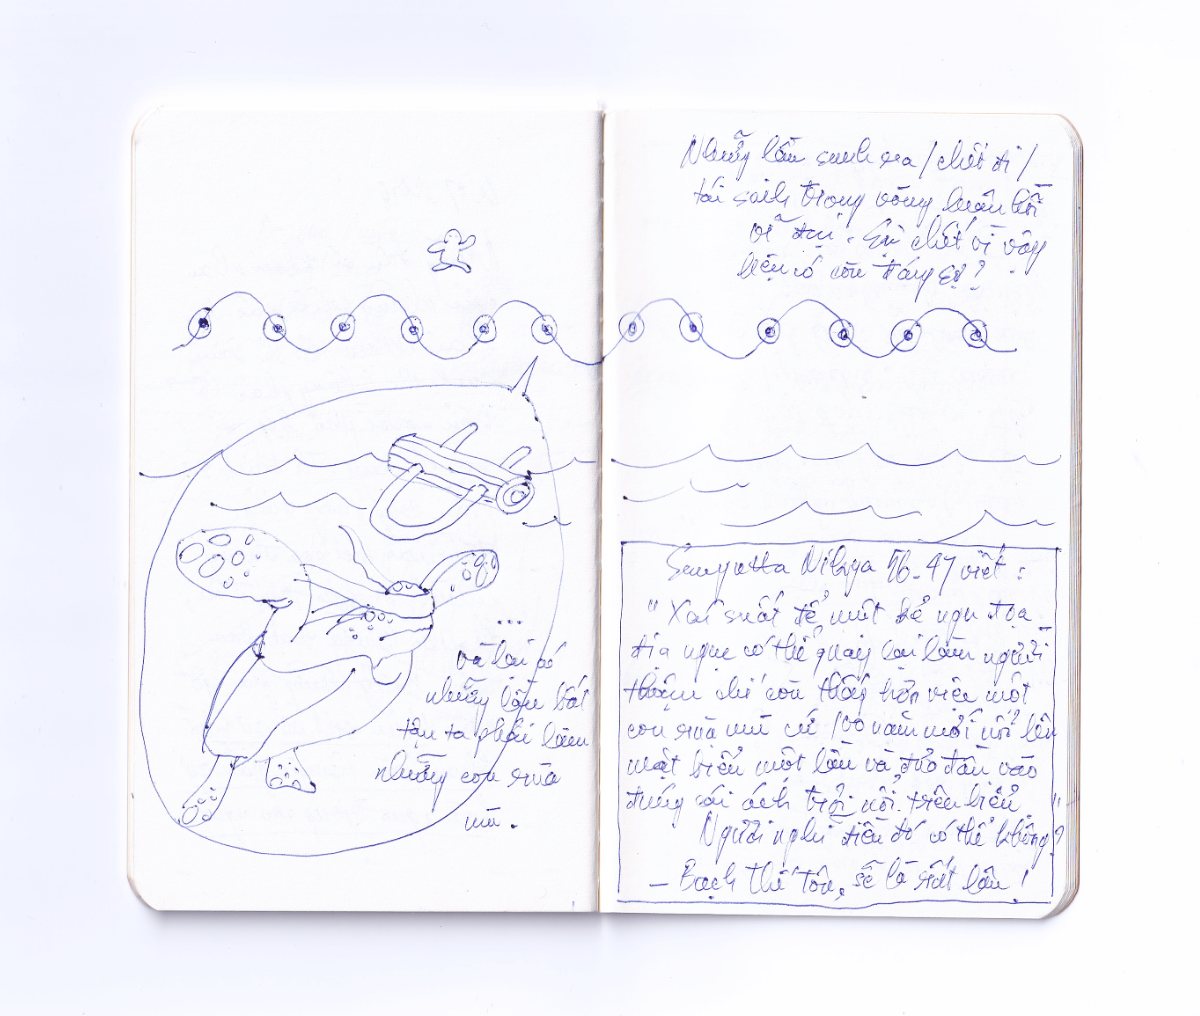 ...
và lại có
những lần bất
tận ta phải làm
những con rùa
mù.
Những lần sinh ra / chết đi /
tái sinh trong vòng luân hồi
vĩ đại. Sự chết vì vậy
liệu có còn đáng sợ?
Samyutta Nikaya 56-47 viết:
"Xác suất để một kẻ ngu đọa
địa ngục có thể quay lại làm người
thậm chí còn thấp hơn việc một
con rùa mù cứ 100 năm mới nổi lên
mặt biển một lần và đưa đầu vào
đúng cái ách trôi nổi trên biển"
Ngươi nghĩ điều đó có thể không?
- Bạch Thế Tôn, sẽ là rất lâu!